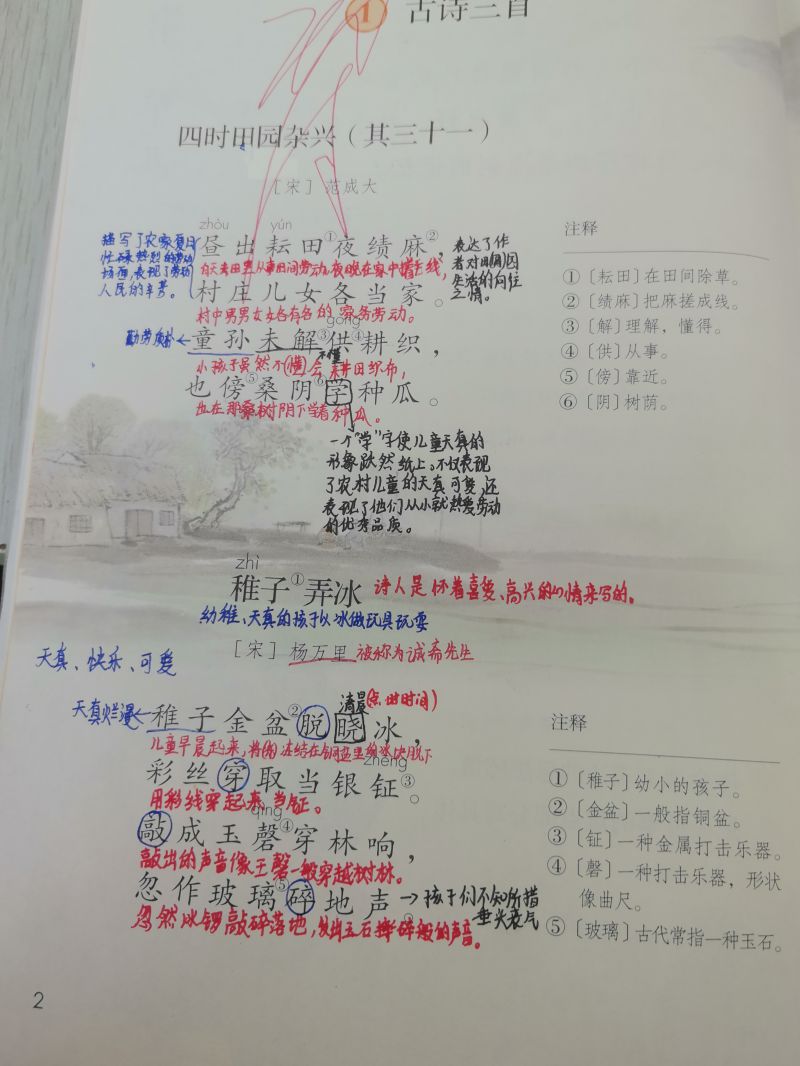 ① 古诗三首
四时田园杂兴（其三十一）
［宋］范成大
zhòu yún
昼出耘田①夜绩麻②，
白天去田里从事田间劳动，夜晚在家中搓线，
村庄儿女各当家。
村中男男女女各有各的家务劳动。
gòng
童孙未解③供④耕织，
不懂
小孩子虽然不懂 会耕田织布，
也傍⑤桑阴⑥学种瓜。
也在那桑树阴下学着种瓜。
描写了农家夏日
忙碌热烈的劳动
场面，表现了劳动
人民的辛苦。
勤劳质朴
表达了作
者对田园
生活的向往
之情。
注释
①〔耘田〕在田间除草。
②〔绩麻〕把麻搓成线。
③〔解〕理解，懂得。
④〔供〕从事。
⑤〔傍〕靠近。
⑥〔阴〕树荫。
一个“学”字使儿童天真的
形象跃然纸上。不仅表现
了农村儿童的天真可爱，还
表现了他们从小就热爱劳动
的优秀品质。
zhì
稚子①弄冰 诗人是怀着喜爱、高兴的心情来写的。
幼稚、天真的孩子以冰做玩具玩耍
［宋］杨万里 被称为诚斋先生
天真、快乐、可爱
清晨（点出时间）
天真烂漫←稚子金盆②脱晓冰，
儿童早晨起来，将 冻结在铜盆里的冰块脱下
zhēng
彩丝穿取当银钲③。
用彩线穿起来当钲。
qìng
敲成玉磬④穿林响，
敲出的声音像玉磬一般穿越树林。
忽作玻璃⑤碎地声。→孩子们不知所措
垂头丧气
忽然冰锣敲碎落地，发出玉石摔碎般的声音。
注释
①〔稚子〕幼小的孩子。
②〔金盆〕一般指铜盆。
③〔钲〕一种金属打击乐器。
④〔磬〕一种打击乐器，形状
像曲尺。
⑤〔玻璃〕古代常指一种玉石。
2